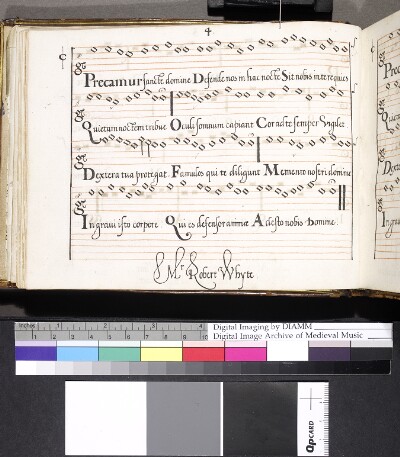 Precamur sancte domine Defende nos in hac nocte Sit nobis in te requies
Quietam noctem tribue Oculi somnum capiant Cor ad te semper vigilet
Dextera tua protegat Famulos qui te diligunt Memento nostri domine
In gravi isto corpore Qui es defensor animae Adesto nobis Domine.
Mr Robert Whyte
Digital Imaging by DIAMM
Digital Image Archive of Medieval Music
QPCARD